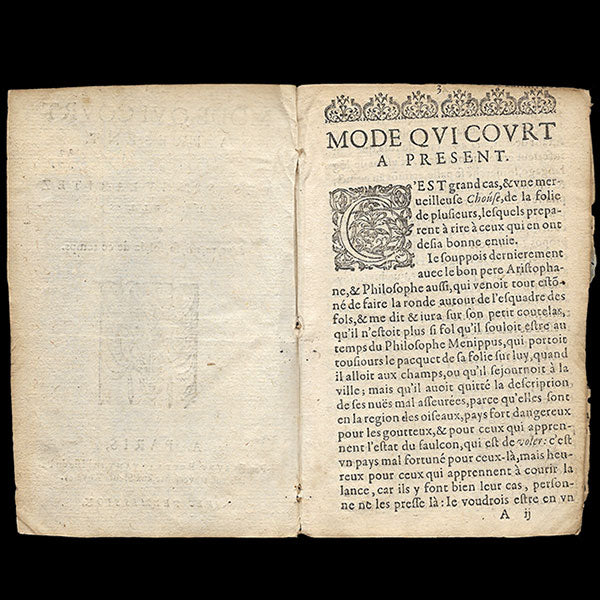 3
MODE QVI COVRT
A PRESENT.
C'EST grand cas, & vne mer-
ueilleuse Chouse, de la folie
de plusieurs, lesquels prepa-
rent à rire à ceux qui en ont
desia bonne enuie.
Ie souppois dernierement
auec le bon pere Aristopha-
ne, & Philosophe aussi, qui venoit tout estō-
né de faire la ronde autour de l'esquadre des
fols, & me dit & iura sur son petit coutelas,
qu'il n'estoit plus si fol qu'il souloit estre au
temps du Philosophe Menippus, qui portoit
tousiours le pacquet de sa folie sur luy, quand
il alloit aux champs, ou qu'il sejournoit à la
ville; mais qu'il auoit quitté la description
de ses nuës mal asseurées, parce qu'elles sont
en la region des oiseaux, pays fort dangereux
pour les goutteux, & pour ceux qui appren-
nent l'estat du faulcon, qui est de voler: c'est
vn pays mal fortuné pour ceux-là, mais heu-
reux pour ceux qui apprennent à courir la
lance, car ils y font bien leur cas, person-
ne ne les presse là: ie voudrois estre en vn
A ij